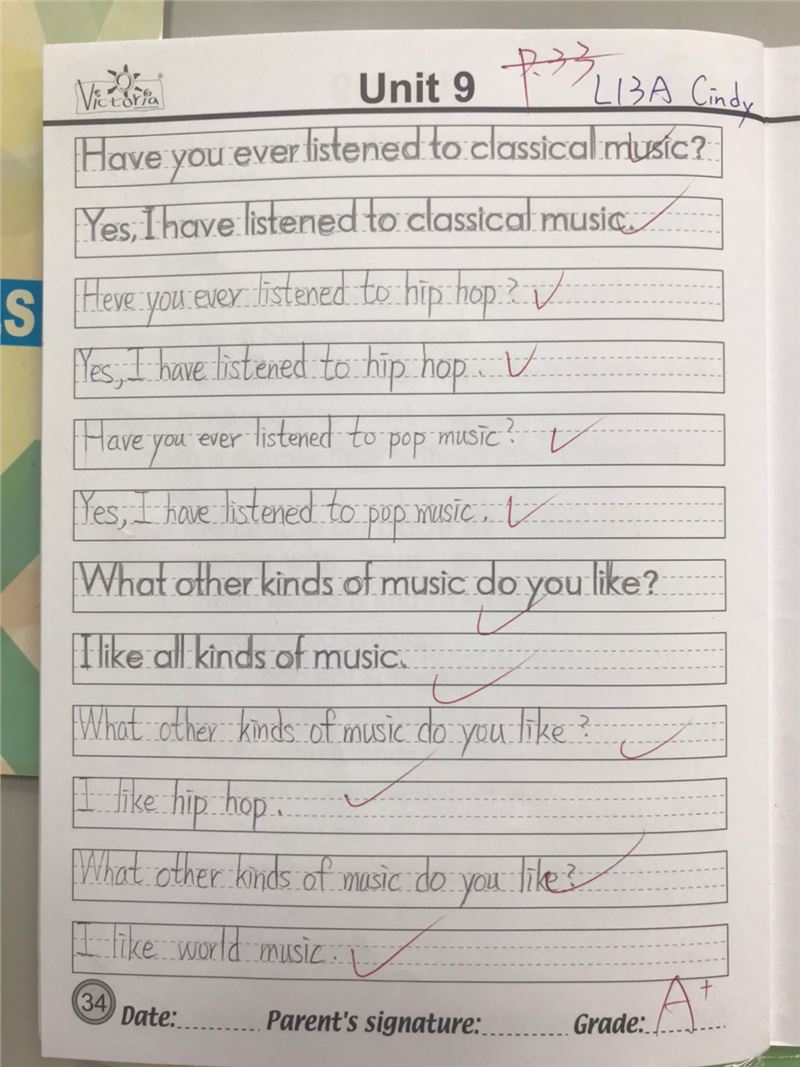 Victoria
Unit 9
P.33
L13A Cindy
Have you ever listened to classical music?
Yes, I have listened to classical music.
Heve you ever listened to hip hop?
Yes, I have listened to hip hop.
Have you ever listened to pop music?
Yes, I have listened to pop music.
What other kinds of music do you like?
I like all kinds of music.
What other kinds of music do you like?
I like hip hop.
What other kinds of music do you like?
I like world music.
34 Date: Parent's signature: Grade: A+
S